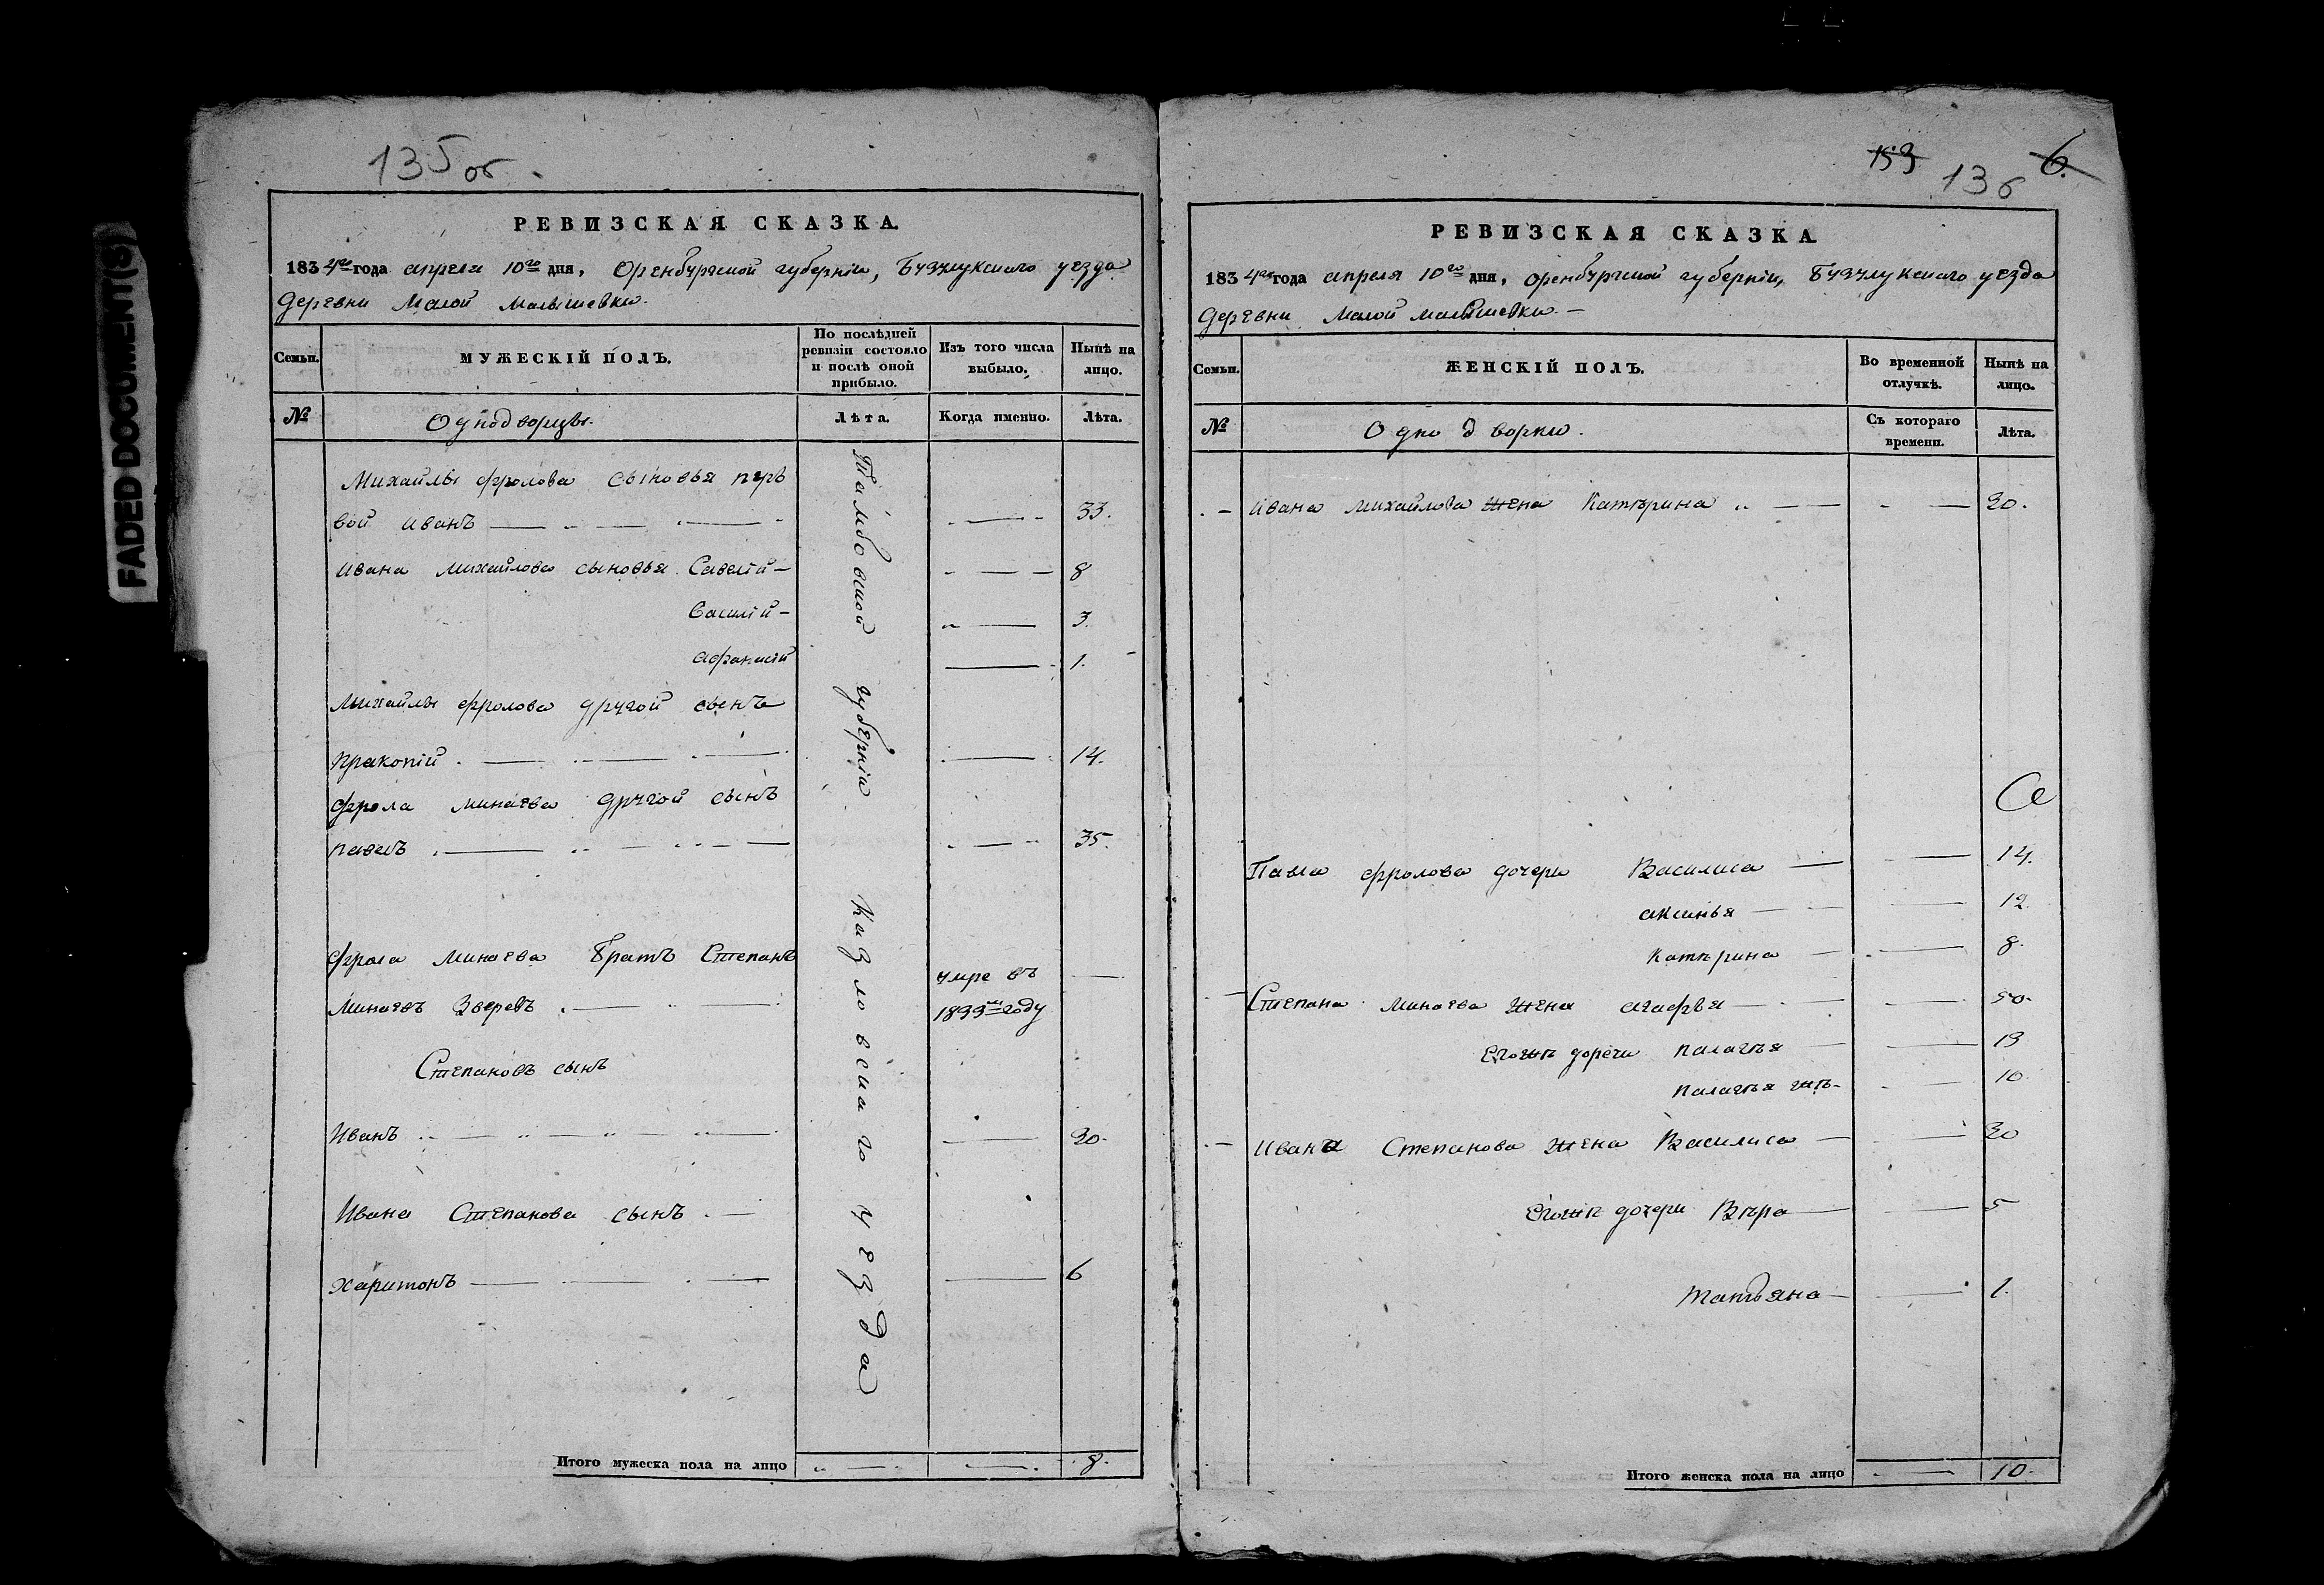 FADED DOCUMENT(S)
135 об.
РЕВИЗСКАЯ СКАЗКА.
1834го года апреля 10го дня, Оренбургской губернїи, Бузулукского уезда
Деревни Малой Малышевки.
Семьи.
МУЖЕСКІЙ ПОЛЪ.
По послѣдней ревизіи состояло и послѣ оной прибыло.
Изъ того числа выбыло.
Нынѣ на лицо.
№
Однодворцы.
Лѣта.
Когда именно.
Лѣта.
Тамбовской губернїи Казловскаго уезда
Михайлы фролова сыновья пер
вой иванъ 33.
ивана михайлова сыновья Савелїй 8
Василїй 3.
афанасїй 1.
Михайлы фролова другой сынъ
пракопїй 14.
фрола минаева другой сынъ
павелъ 35.
фрола минаева братъ Степанъ
минаевъ Зверевъ умре въ
1833м году
Степановъ сынъ
Иванъ 30.
Ивана Степанова сынъ
харитонъ 6
Итого мужеска пола на лицо 8.
153
136
6.
РЕВИЗСКАЯ СКАЗКА.
1834го года апреля 10го дня, Оренбургской губернїи, Бузулукского уезда
Деревни Малой малышевки.
Семьи.
ЖЕНСКІЙ ПОЛЪ.
Во временной отлучкѣ.
Нынѣ на лицо.
№
Однодворки.
Съ котораго времени.
Лѣта.
ивана михайлова жена Катѣрина 30.
Павла фролова дочери Василиса 14.
аксинья 12.
Катѣрина 8.
Степана минаева жена агафья 50.
Егожъ доречи палагѣя 13
палагѣя жъ 10
Ивана Степанова жена Василиса 30
Егожъ дочери Вѣра 5
татьяна 1.
Итого женска пола на лицо 10.